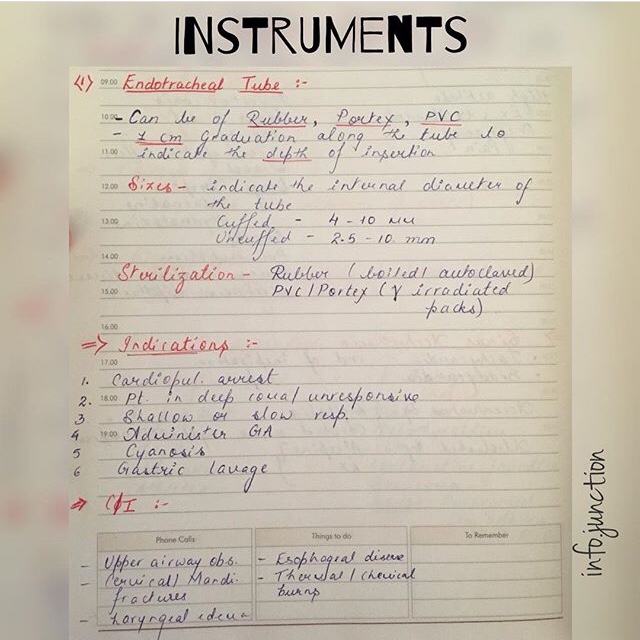 INSTRUMENTS
(1) 09.00 Endotracheal Tube :-
10.00 - Can be of Rubber, Portex, PVC
- 1 cm graduation along the tube to
11.00 indicate the depth of insertion
12.00 Sizes - indicate the internal diameter of
the tube
13.00 Cuffed - 4 - 10 mm
Uncuffed - 2.5 - 10 mm
14.00
Sterilization - Rubber (boiled/autoclaved)
15.00 PVC/Portex (γ irradiated
packs)
16.00
=> Indications :-
17.00
1. Cardiopul. arrest
2. 18.00 Pt. in deep coma/unresponsive
3 Shallow or slow resp.
4 19.00 Administer GA
5 Cyanosis
6 Gastric lavage
=> C/I :-
Phone Calls
- Upper airway obs.
- Cervical/Mandi.
fractures
- Laryngeal edema
Things to do
- Esophageal disease
- Thermal/chemical
burns
To Remember
info.junction